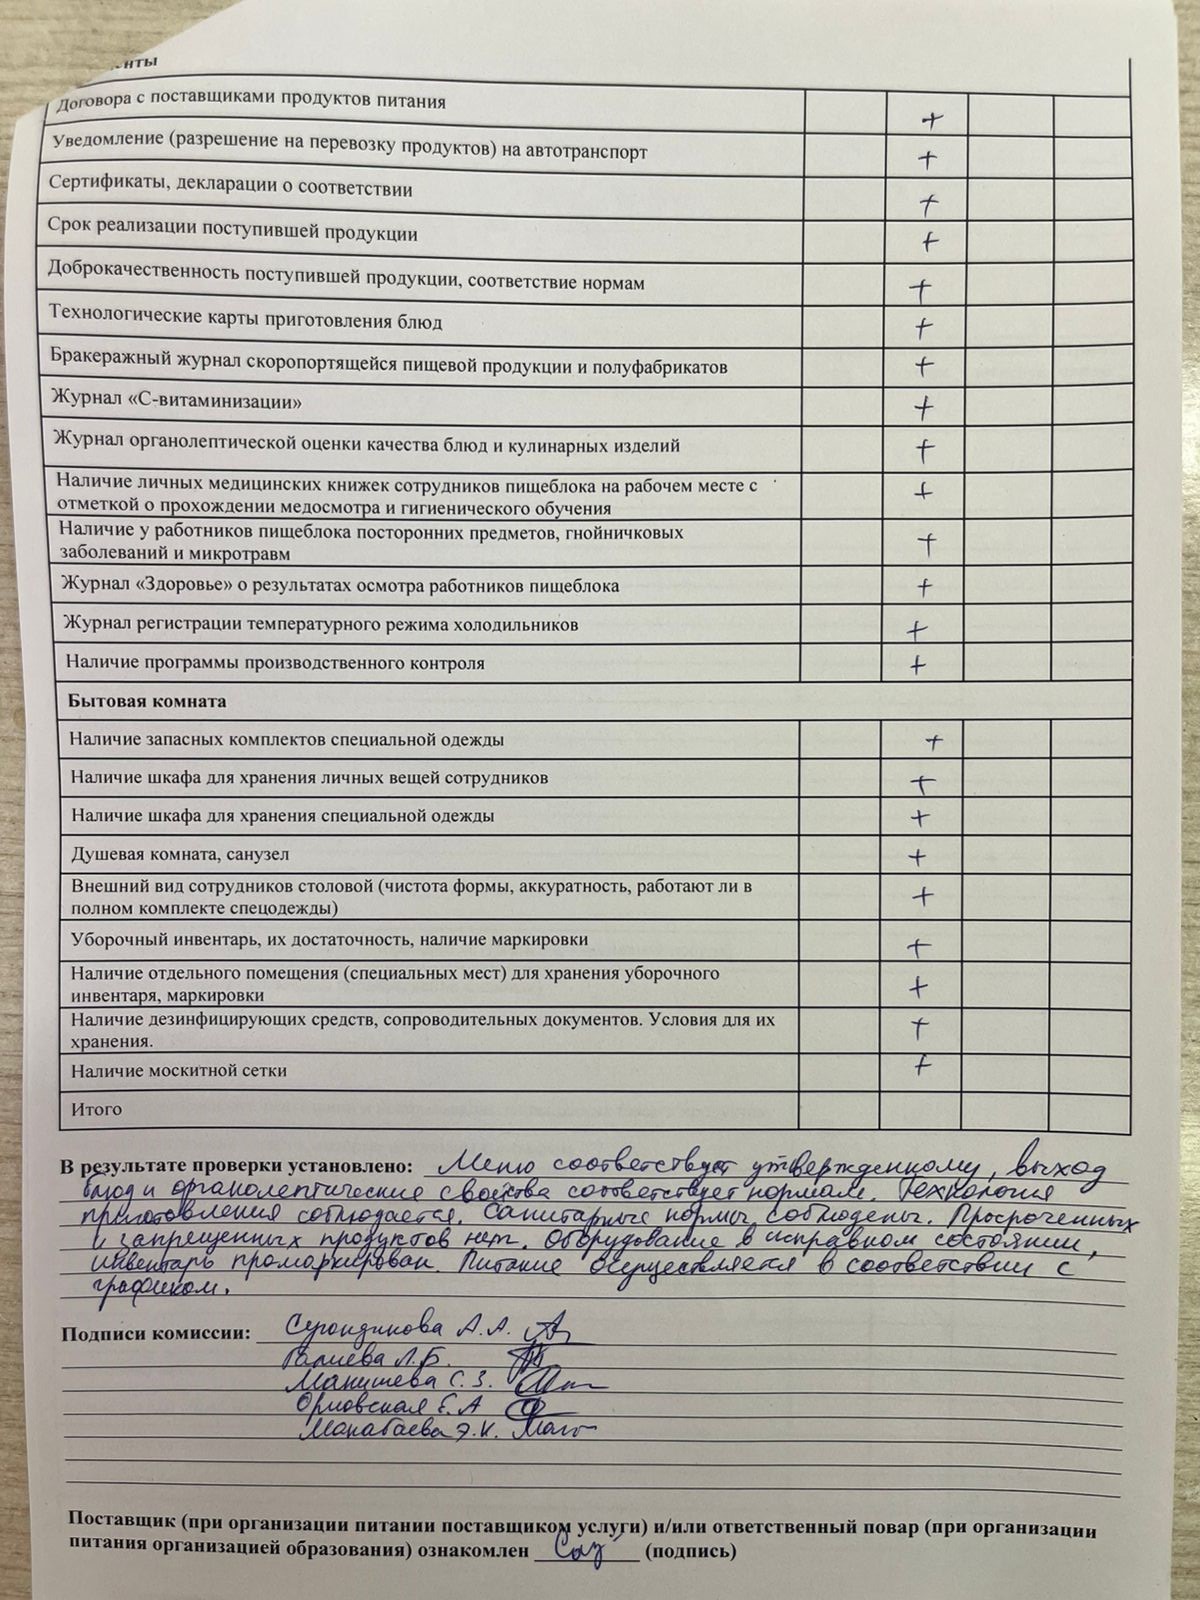 енты
Договора с поставщиками продуктов питания +
Уведомление (разрешение на перевозку продуктов) на автотранспорт +
Сертификаты, декларации о соответствии +
Срок реализации поступившей продукции +
Доброкачественность поступившей продукции, соответствие нормам +
Технологические карты приготовления блюд +
Бракеражный журнал скоропортящейся пищевой продукции и полуфабрикатов +
Журнал «С-витаминизации» +
Журнал органолептической оценки качества блюд и кулинарных изделий +
Наличие личных медицинских книжек сотрудников пищеблока на рабочем месте с
отметкой о прохождении медосмотра и гигиенического обучения +
Наличие у работников пищеблока посторонних предметов, гнойничковых
заболеваний и микротравм +
Журнал «Здоровье» о результатах осмотра работников пищеблока +
Журнал регистрации температурного режима холодильников +
Наличие программы производственного контроля +
Бытовая комната
Наличие запасных комплектов специальной одежды +
Наличие шкафа для хранения личных вещей сотрудников +
Наличие шкафа для хранения специальной одежды +
Душевая комната, санузел +
Внешний вид сотрудников столовой (чистота формы, аккуратность, работают ли в
полном комплекте спецодежды) +
Уборочный инвентарь, их достаточность, наличие маркировки +
Наличие отдельного помещения (специальных мест) для хранения уборочного
инвентаря, маркировки +
Наличие дезинфицирующих средств, сопроводительных документов. Условия для их
хранения. +
Наличие москитной сетки +
Итого
В результате проверки установлено: Меню соответствует утвержденному, выход
блюд и органолептические свойства соответствует нормам. Технология
приготовления соблюдается. Санитарные нормы соблюдены. Просроченных
и запрещенных продуктов нет. Оборудование в исправном состоянии,
инвентарь промаркирован. Питание осуществляется в соответствии с
графиком.
Подписи комиссии: А.А.
Галиева Л.Б.
Манишева С.З.
Орловская Е.А
Манабаева Э.К.
Поставщик (при организации питании поставщиком услуги) и/или ответственный повар (при организации
питания организацией образования) ознакомлен (подпись)